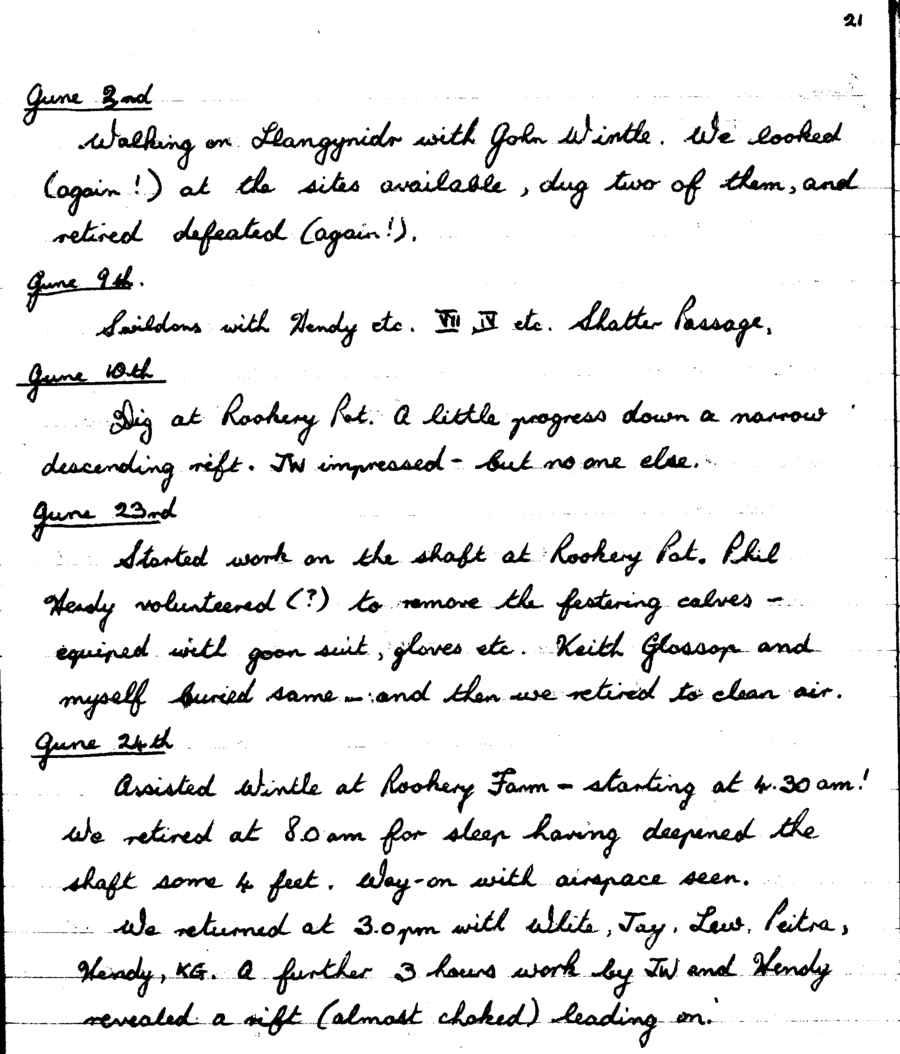 21
June 2nd
Walking on Llangynidr with John Wintle. We looked
(again!) at the sites available, dug two of them, and
retired defeated (again!).
June 9th.
Swildons with Hendy etc. VII, IV etc. Shatter Passage,
June 10th
Dig at Rookery Pot. A little progress down a narrow
descending rift. JW impressed - but no one else.
June 23rd
Started work on the shaft at Rookery Pot. Phil
Hendy volunteered (?) to remove the festering calves -
equiped with goon suit, gloves etc. Keith Glossop and
myself buried same - and then we retired to clean air.
June 24th
Assisted Wintle at Rookery Farm - starting at 4.30 am!
We retired at 8.0 am for sleep having deepened the
shaft some 4 feet. Way-on with airspace seen.
We returned at 3.0 pm with White, Jay, Lew, Peitra,
Hendy, KG. A further 3 hours work by JW and Hendy
revealed a rift (almost choked) leading on.